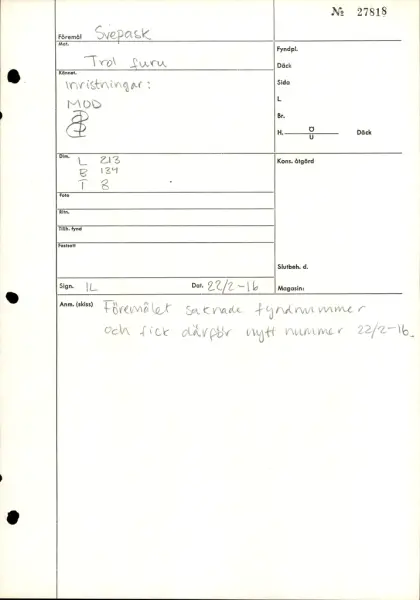 № 27818
Föremål Svepask
Mat.
Trol furu
Fyndpl.
Däck
Sida
L.
Br.
H. Ö
U
Däck
Kännet.
Inristningar:
MOD
Dim. L 213
B 134
T 8
Kons. åtgärd
Foto
Ritn.
Tillh. fynd
Fastsatt
Slutbeh. d.
Sign. IL
Dat. 22/2-16
Magasin:
Anm. (skiss) Föremålet saknade fyndnummer
och fick därför nytt nummer 22/2-16.